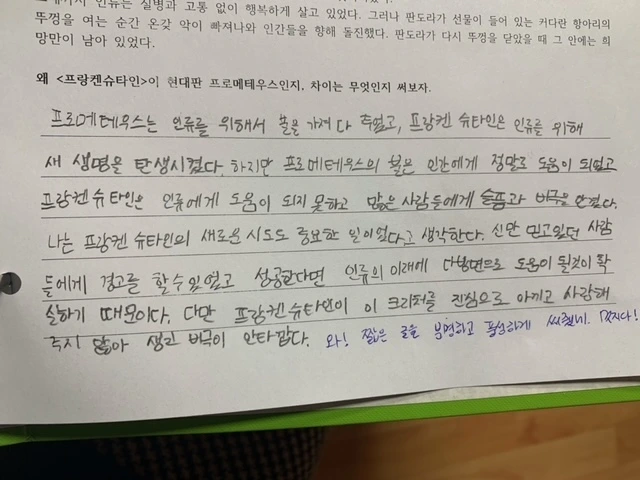 그때까지 인류는 질병과 고통 없이 행복하게 살고 있었다. 그러나 판도라가 선물이 들어 있는 커다란 항아리의
뚜껑을 여는 순간 온갖 악이 빠져나와 인간들을 향해 돌진했다. 판도라가 다시 뚜껑을 닫았을 때 그 안에는 희
망만이 남아 있었다.
왜 <프랑켄슈타인>이 현대판 프로메테우스인지, 차이는 무엇인지 써보자.
프로메테우스는 인류를 위해서 불을 가져다 주었고, 프랑켄슈타인은 인류를 위해
새 생명을 탄생시켰다. 하지만 프로메테우스의 불은 인간에게 정말로 도움이 되었고
프랑켄슈타인은 인류에게 도움이 되지 못하고 많은 사람들에게 슬픔과 비극을 안겼다.
나는 프랑켄슈타인의 새로운 시도도 중요한 일이었다고 생각한다. 신만 믿고있던 사람
들에게 경고를 할 수 있었고 성공한다면 인류의 미래에 다방면으로 도움이 될것이 확
실하기 때문이다. 다만 프랑켄슈타인이 이 크리처를 진심으로 아끼고 사랑해
주지 않아 생긴 비극이 안타깝다. 와! 짧은 글을 분명하고 풍성하게 써줬네. 멋지다!